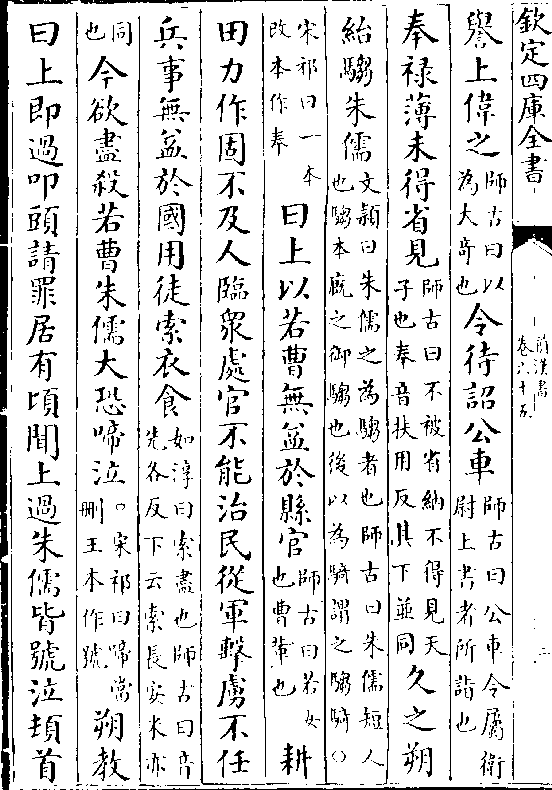 欽定四庫全書
前漢書
卷六十五
二
譽上偉之師古曰以為大竒也令待詔公車師古曰公車令屬衛尉上書者所詣也
奉禄薄未得省見師古曰不被省納不得見天子也奉音扶用反其下並同久之朔
紿騶朱儒文頴曰朱儒之為騶者也師古曰朱儒短人也騶本廐之御騶也後以為騎謂之騶騎○
宋祁曰一本改本作奉曰上以若曹無益於縣官師古曰若女也曹軰也耕
田力作固不及人臨衆處官不能治民從軍擊虜不任
兵事無益於國用徒索衣食如淳曰索盡也師古曰音先各反下云索長安米亦
同也今欲盡殺若曹朱儒大恐啼泣○宋祁曰啼當刪王本作號朔教
曰上即過叩頭請罪居有頃聞上過朱儒皆號泣頓首